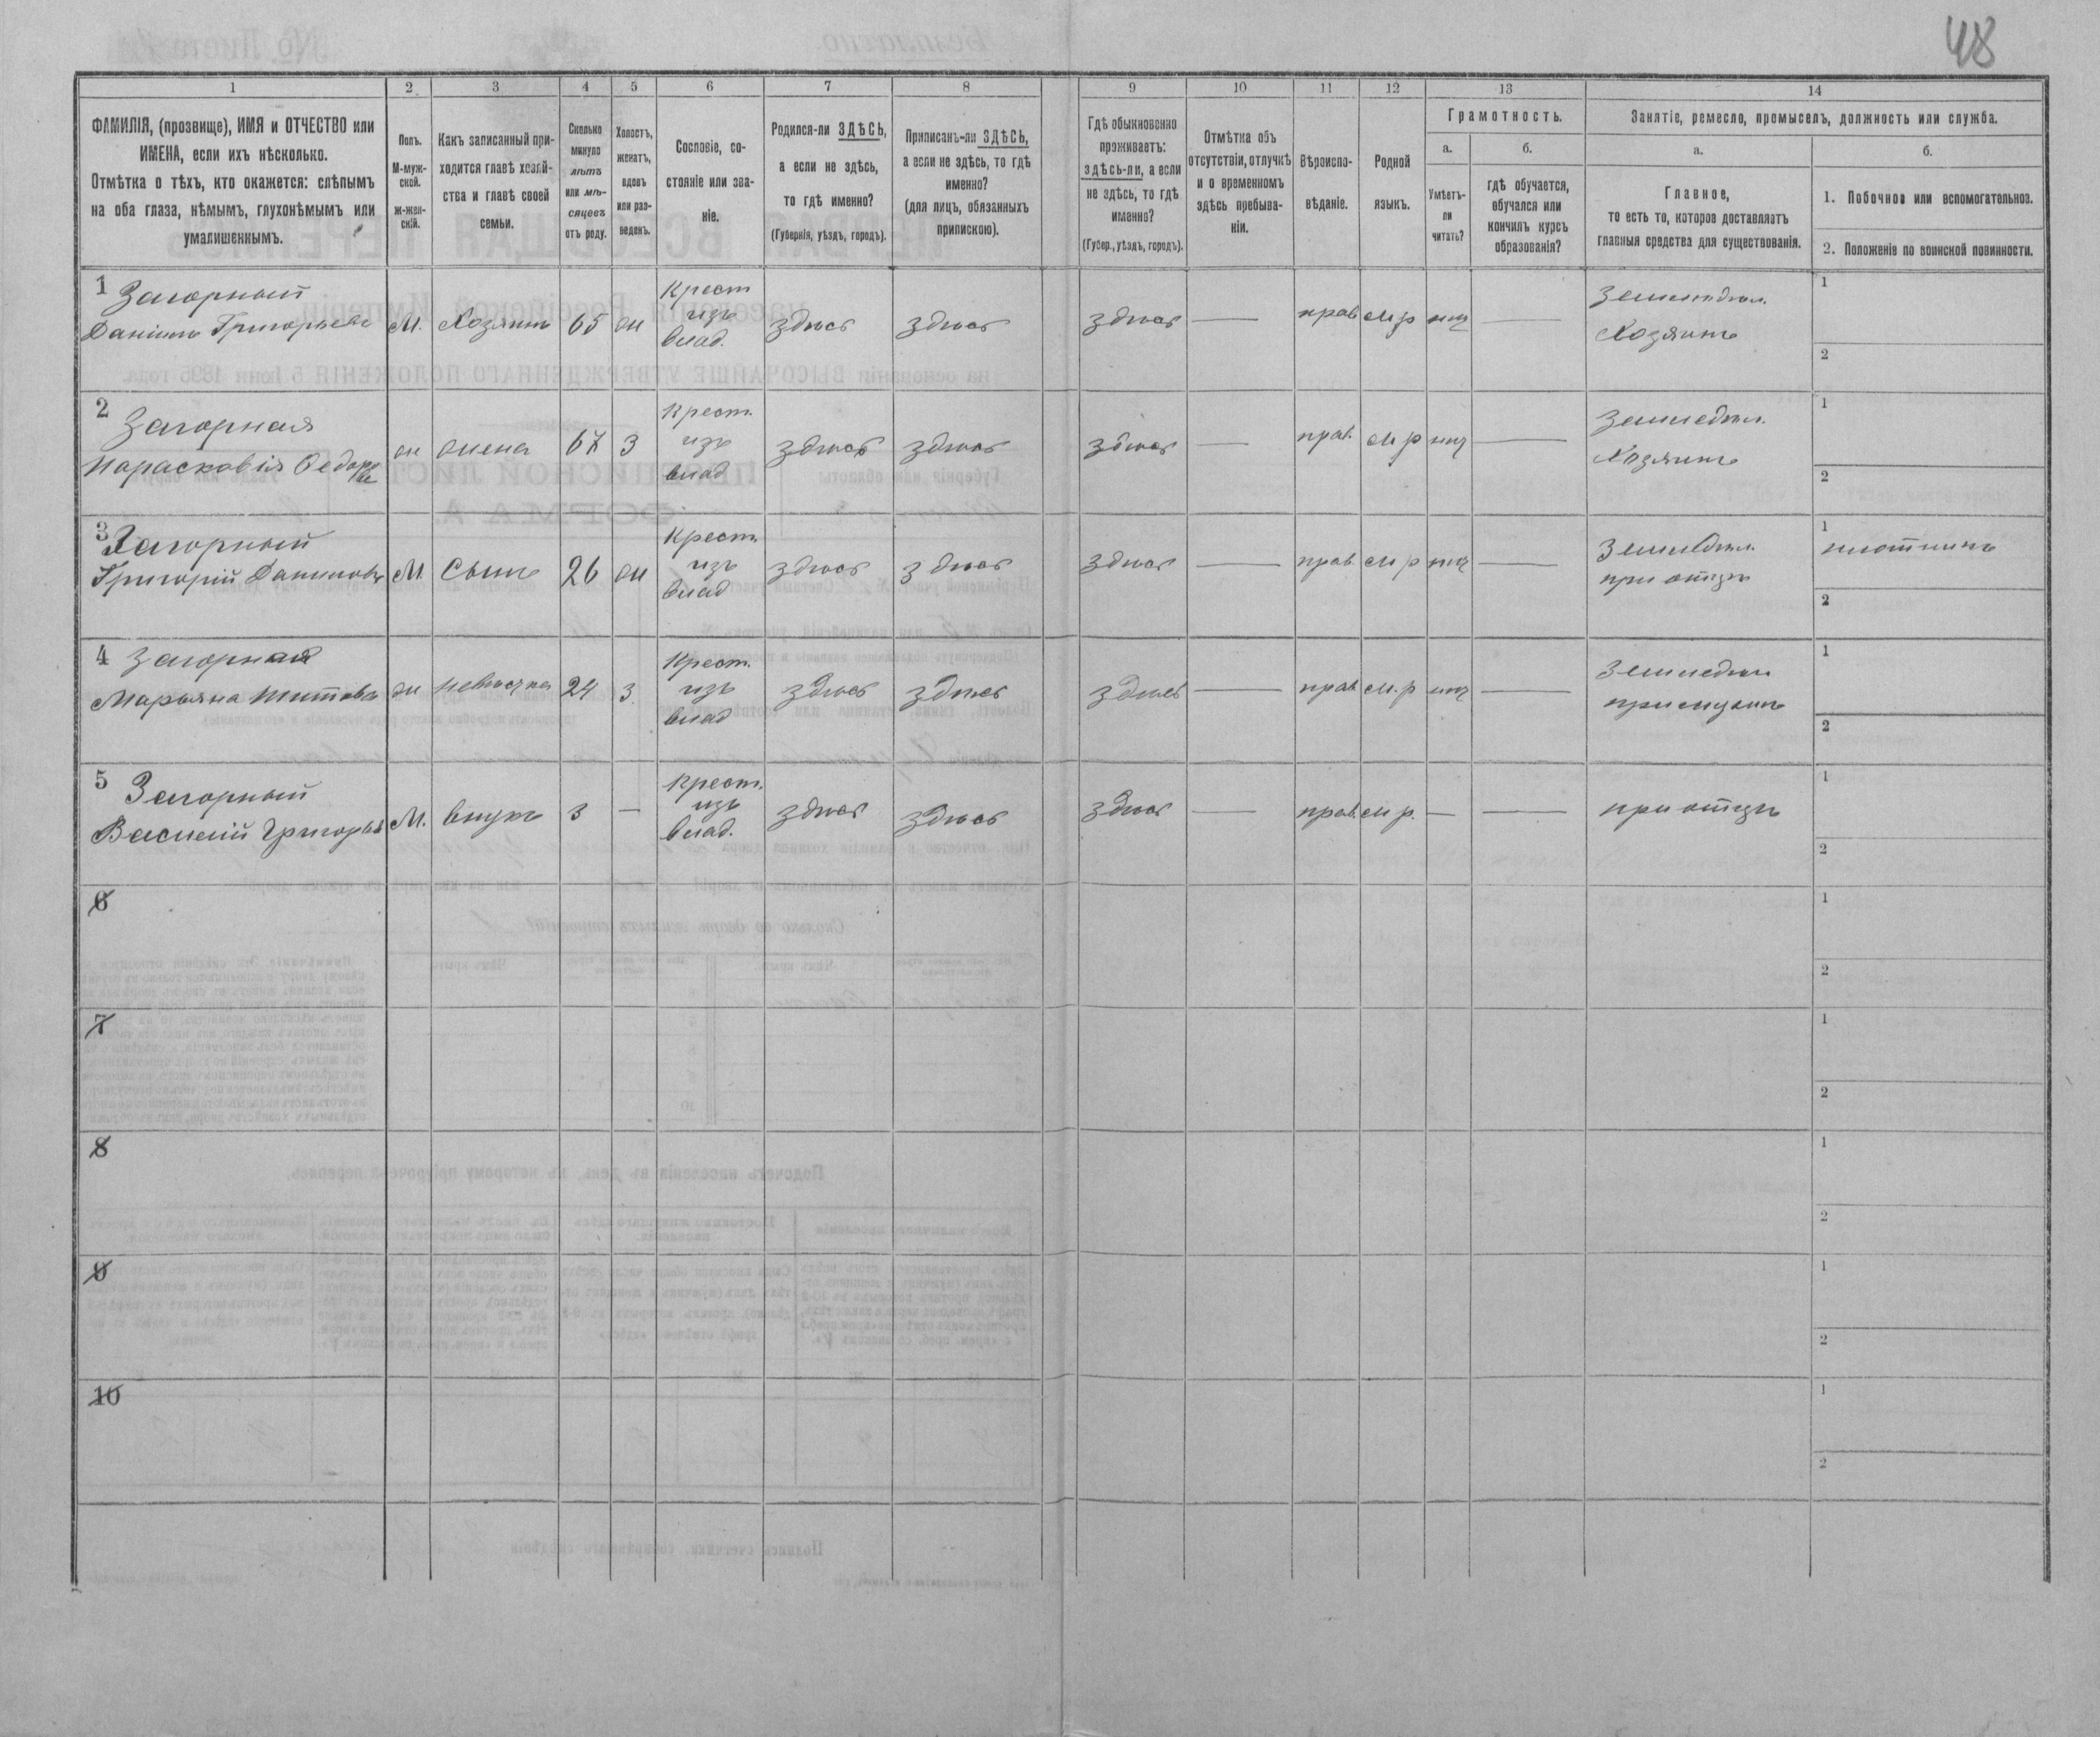 48
1 2 3 4 5 6 7 8 9 10 11 12 13 14
ФАМИЛІЯ, (прозвище), ИМЯ и ОТЧЕСТВО или
ИМЕНА, если ихъ нѣсколько.
Отмѣтка о тѣхъ, кто окажется: слѣпымъ
на оба глаза, нѣмымъ, глухонѣмымъ или
умалишеннымъ.
Полъ.
М-муж-
ской.
ж-жен-
скій.
Какъ записанный при-
ходится главѣ хозяй-
ства и главѣ своей
семьи.
Сколько
минуло
лѣтъ
или мѣ-
сяцевъ
отъ роду.
Холостъ,
женатъ,
вдовъ
или раз-
веденъ.
Сословіе, со-
стояніе или зва-
ніе.
Родился-ли ЗДѢСЬ,
а если не здѣсь,
то гдѣ именно?
(Губернія, уѣздъ, городъ).
Приписанъ-ли ЗДѢСЬ,
а если не здѣсь, то гдѣ
именно?
(для лицъ, обязанныхъ
припискою).
Гдѣ обыкновенно
проживаетъ:
здѣсь-ли, а если
не здѣсь, то гдѣ
именно?
(Губер., уѣздъ, городъ).
Отмѣтка объ
отсутствіи, отлучкѣ
и о временномъ
здѣсь пребыва-
ніи.
Вѣроиспо-
вѣданіе.
Родной
языкъ.
Грамотность.
а.
Умѣетъ-
ли
читать?
б.
гдѣ обучается,
обучался или
кончилъ курсъ
образованія?
Занятіе, ремесло, промыселъ, должность или служба.
а.
Главное,
то есть то, которое доставляетъ
главныя средства для существованія.
б.
1. Побочное или вспомогательное.
2. Положеніе по воинской повинности.
1 Загорный
Даніилъ Григорьевъ М. Хозяинъ 65 ж Крест изъ влад. здѣсь здѣсь здѣсь — прав м р нѣт — Земледѣл. Хозяинъ
1
2
2 Загорная
Парасковія Федоровна ж жена 67 З Крест. изъ влад здѣсь здѣсь здѣсь — прав. м р нѣт — Земледѣл. Хозяинъ
1
2
3 Загорный
Григорій Даниловъ М. Сынъ 26 ж Крест. изъ влад здѣсь здѣсь здѣсь — прав м р нѣт — Земледѣл. при отцѣ
1 плотникъ
2
4 Загорная
Марьяна Титова ж невѣстка 24 З. Крест. изъ влад здѣсь здѣсь здѣсь — прав м. р нѣт — Земледѣл при мужѣ
1
2
5 Загорный
Василій Григорьев М. внукъ 3 — Крест. изъ влад. здѣсь здѣсь здѣсь — прав. м р. — — при отцѣ
1
2
6
1
2
7
1
2
8
1
2
9
1
2
10
1
2